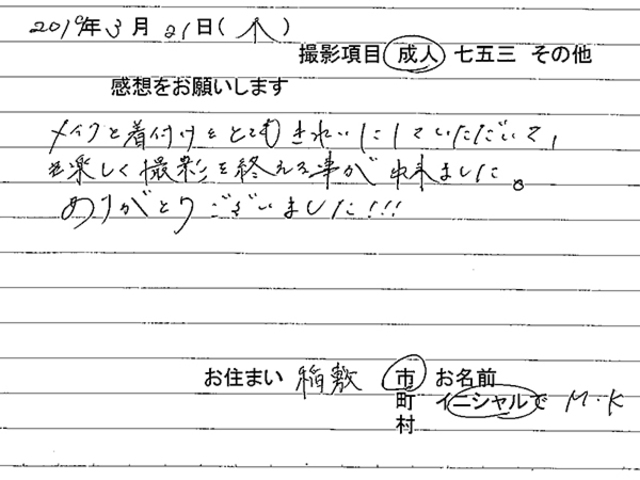 2019年3月21日(木)
撮影項目 成人 七五三 その他
感想をお願いします
メイクと着付けをとてもきれいにしていただいて、
楽しく撮影を終える事が出来ました。
ありがとうございました!!!
お住まい 稲敷 市 お名前
町 イニシャルで M・K
村